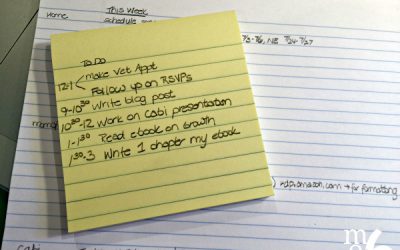 This Week
Home
schedule
7/3-7/6, NB 7/24-7/27
TO DO
12-1 Make Vet Appt
Follow up on RSVPs
9-10³⁰ Write blog post
10³⁰-12 Work on Cabi presentation
1-1³⁰ Read ebook on Growth
1³⁰-3 Write 1 chapter my ebook
kdp.amazon.com → for formatting
cabi
m